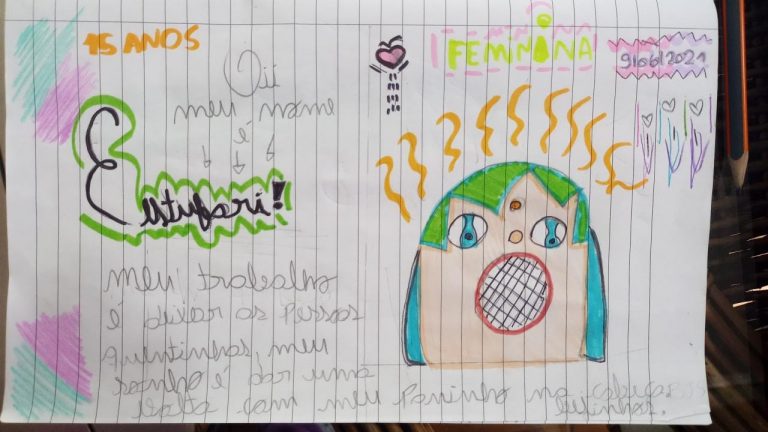 15 ANOS
Oii
meu nome
é
Estufari!
FEMININA
9/06/2021
meu trabalho
é deixar as Pessoas
quentinhas, meu
sonho é dar uma
volta com meu Paninho na cabeça.